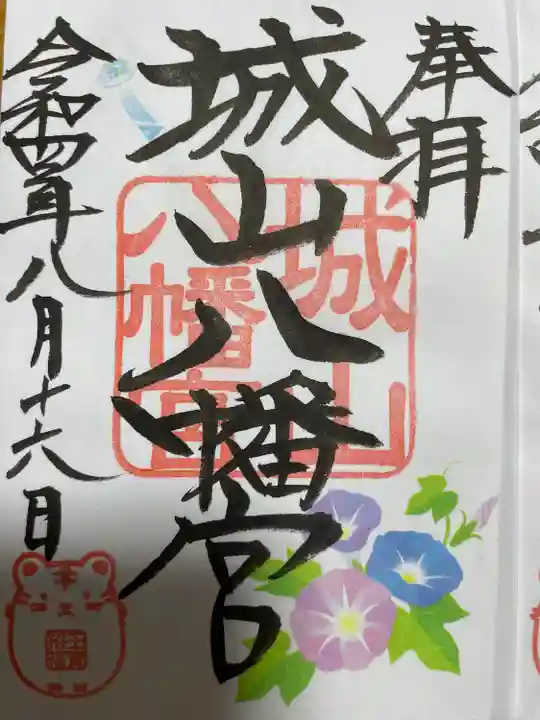 奉拝
城山八幡宮
城山八幡宮
令和四年八月十六日